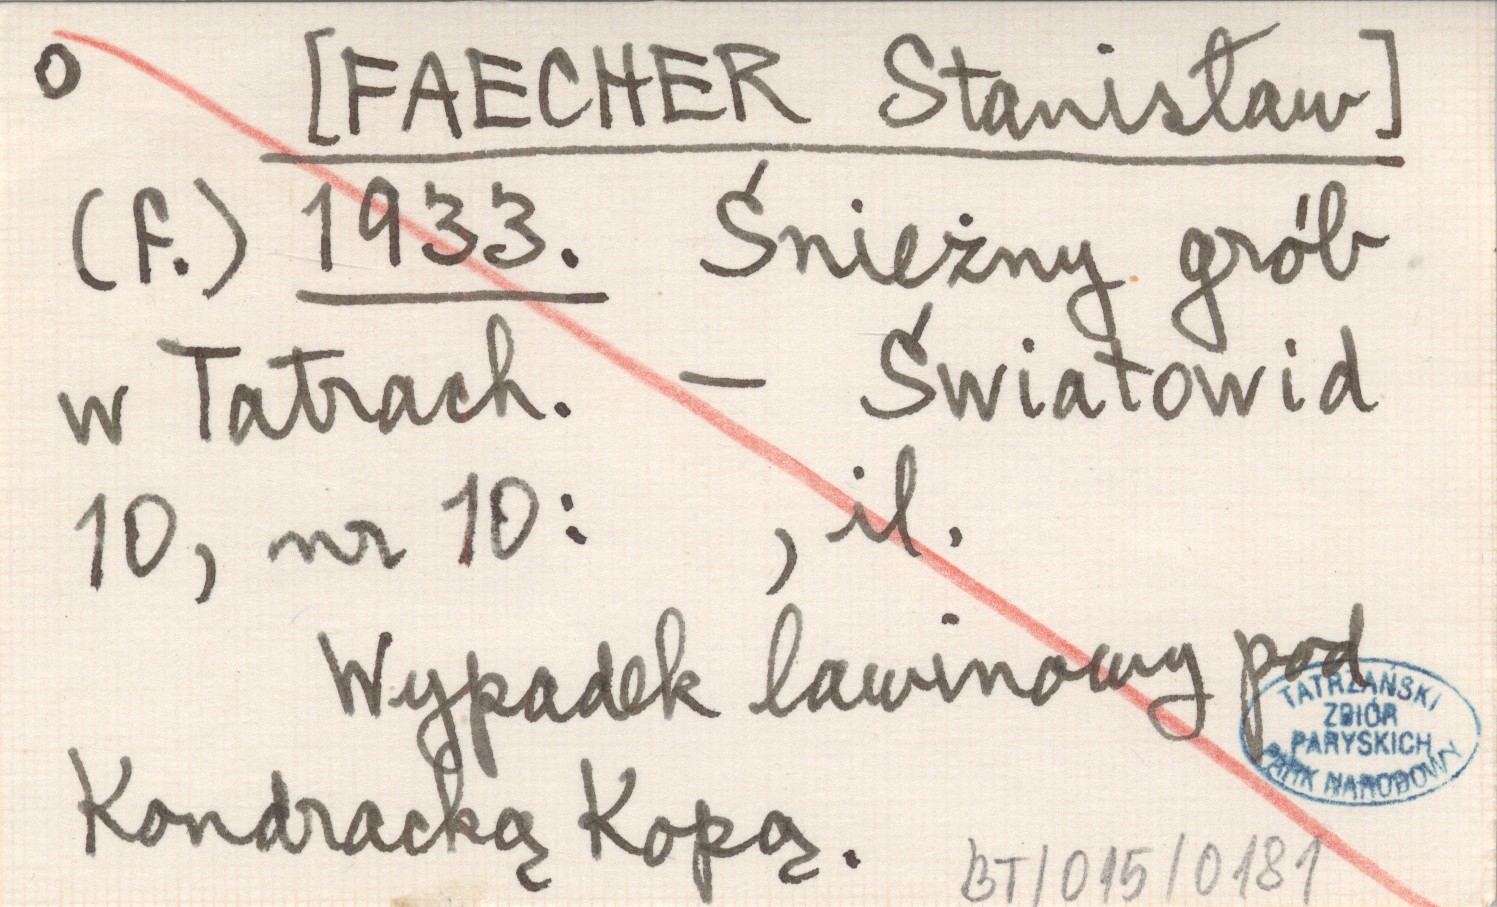 o [FAECHER Stanisław]
(f.) 1933. Śnieżny grób
w Tatrach. — Światowid
10, nr 10: , il.
Wypadek lawinowy pod
Kondracką Kopą.
TATRZAŃSKI
ZBIÓR
PARYSKICH
PARK NARODOWY
BT/015/0181